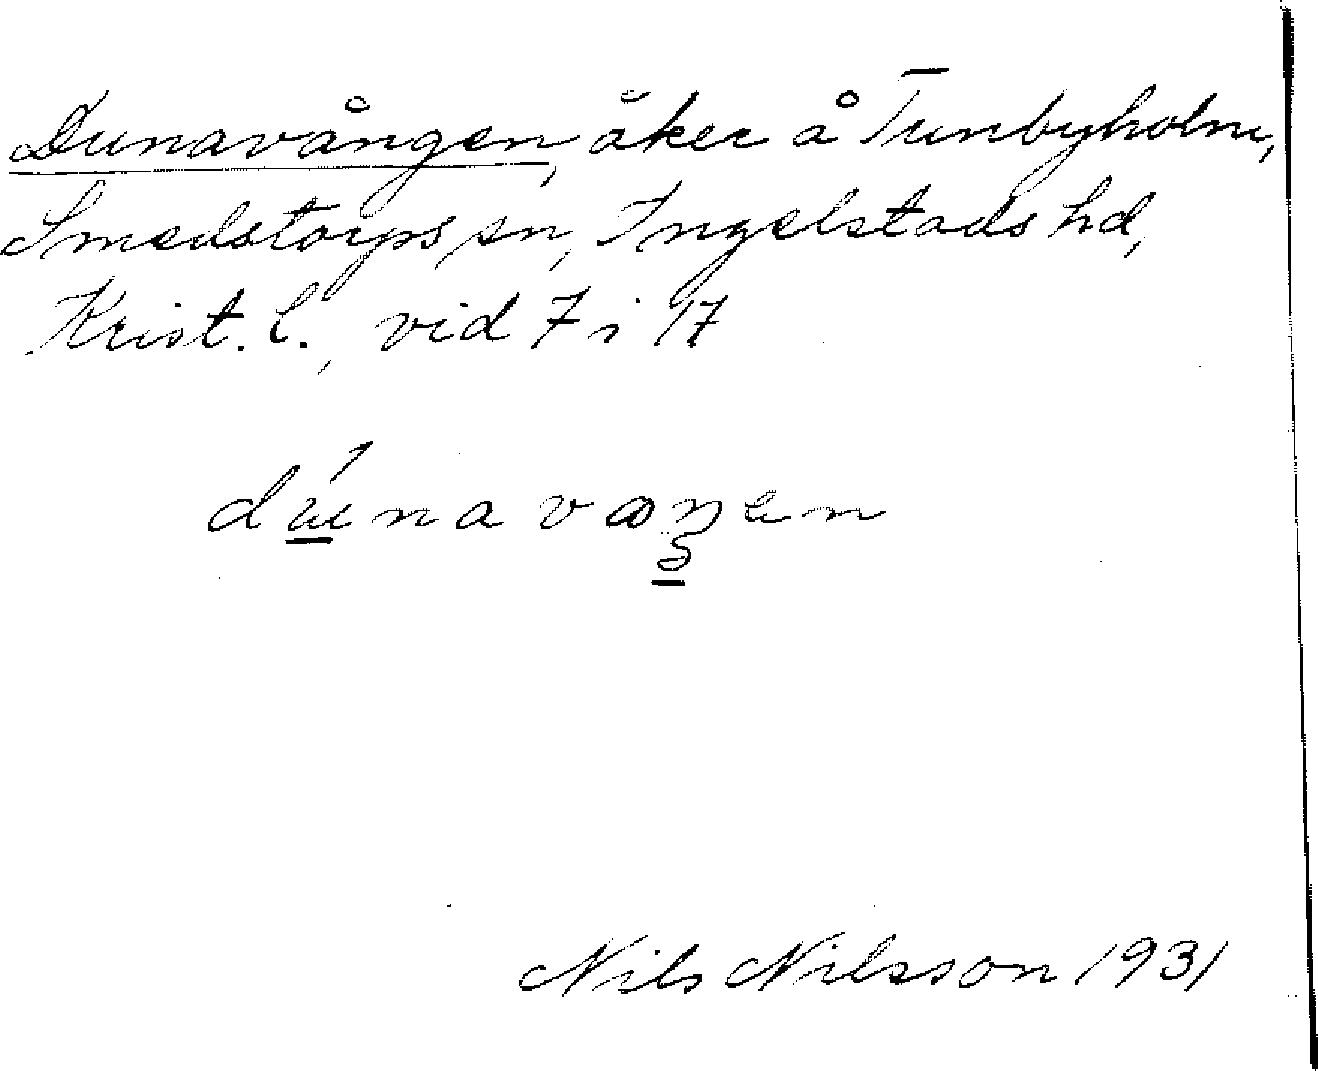 Dunavången, åker å Tunbyholm,
Smedstorps sn, Ingelstads hd,
Krist. l., vid 7 i 17
Nils Nilsson 1931